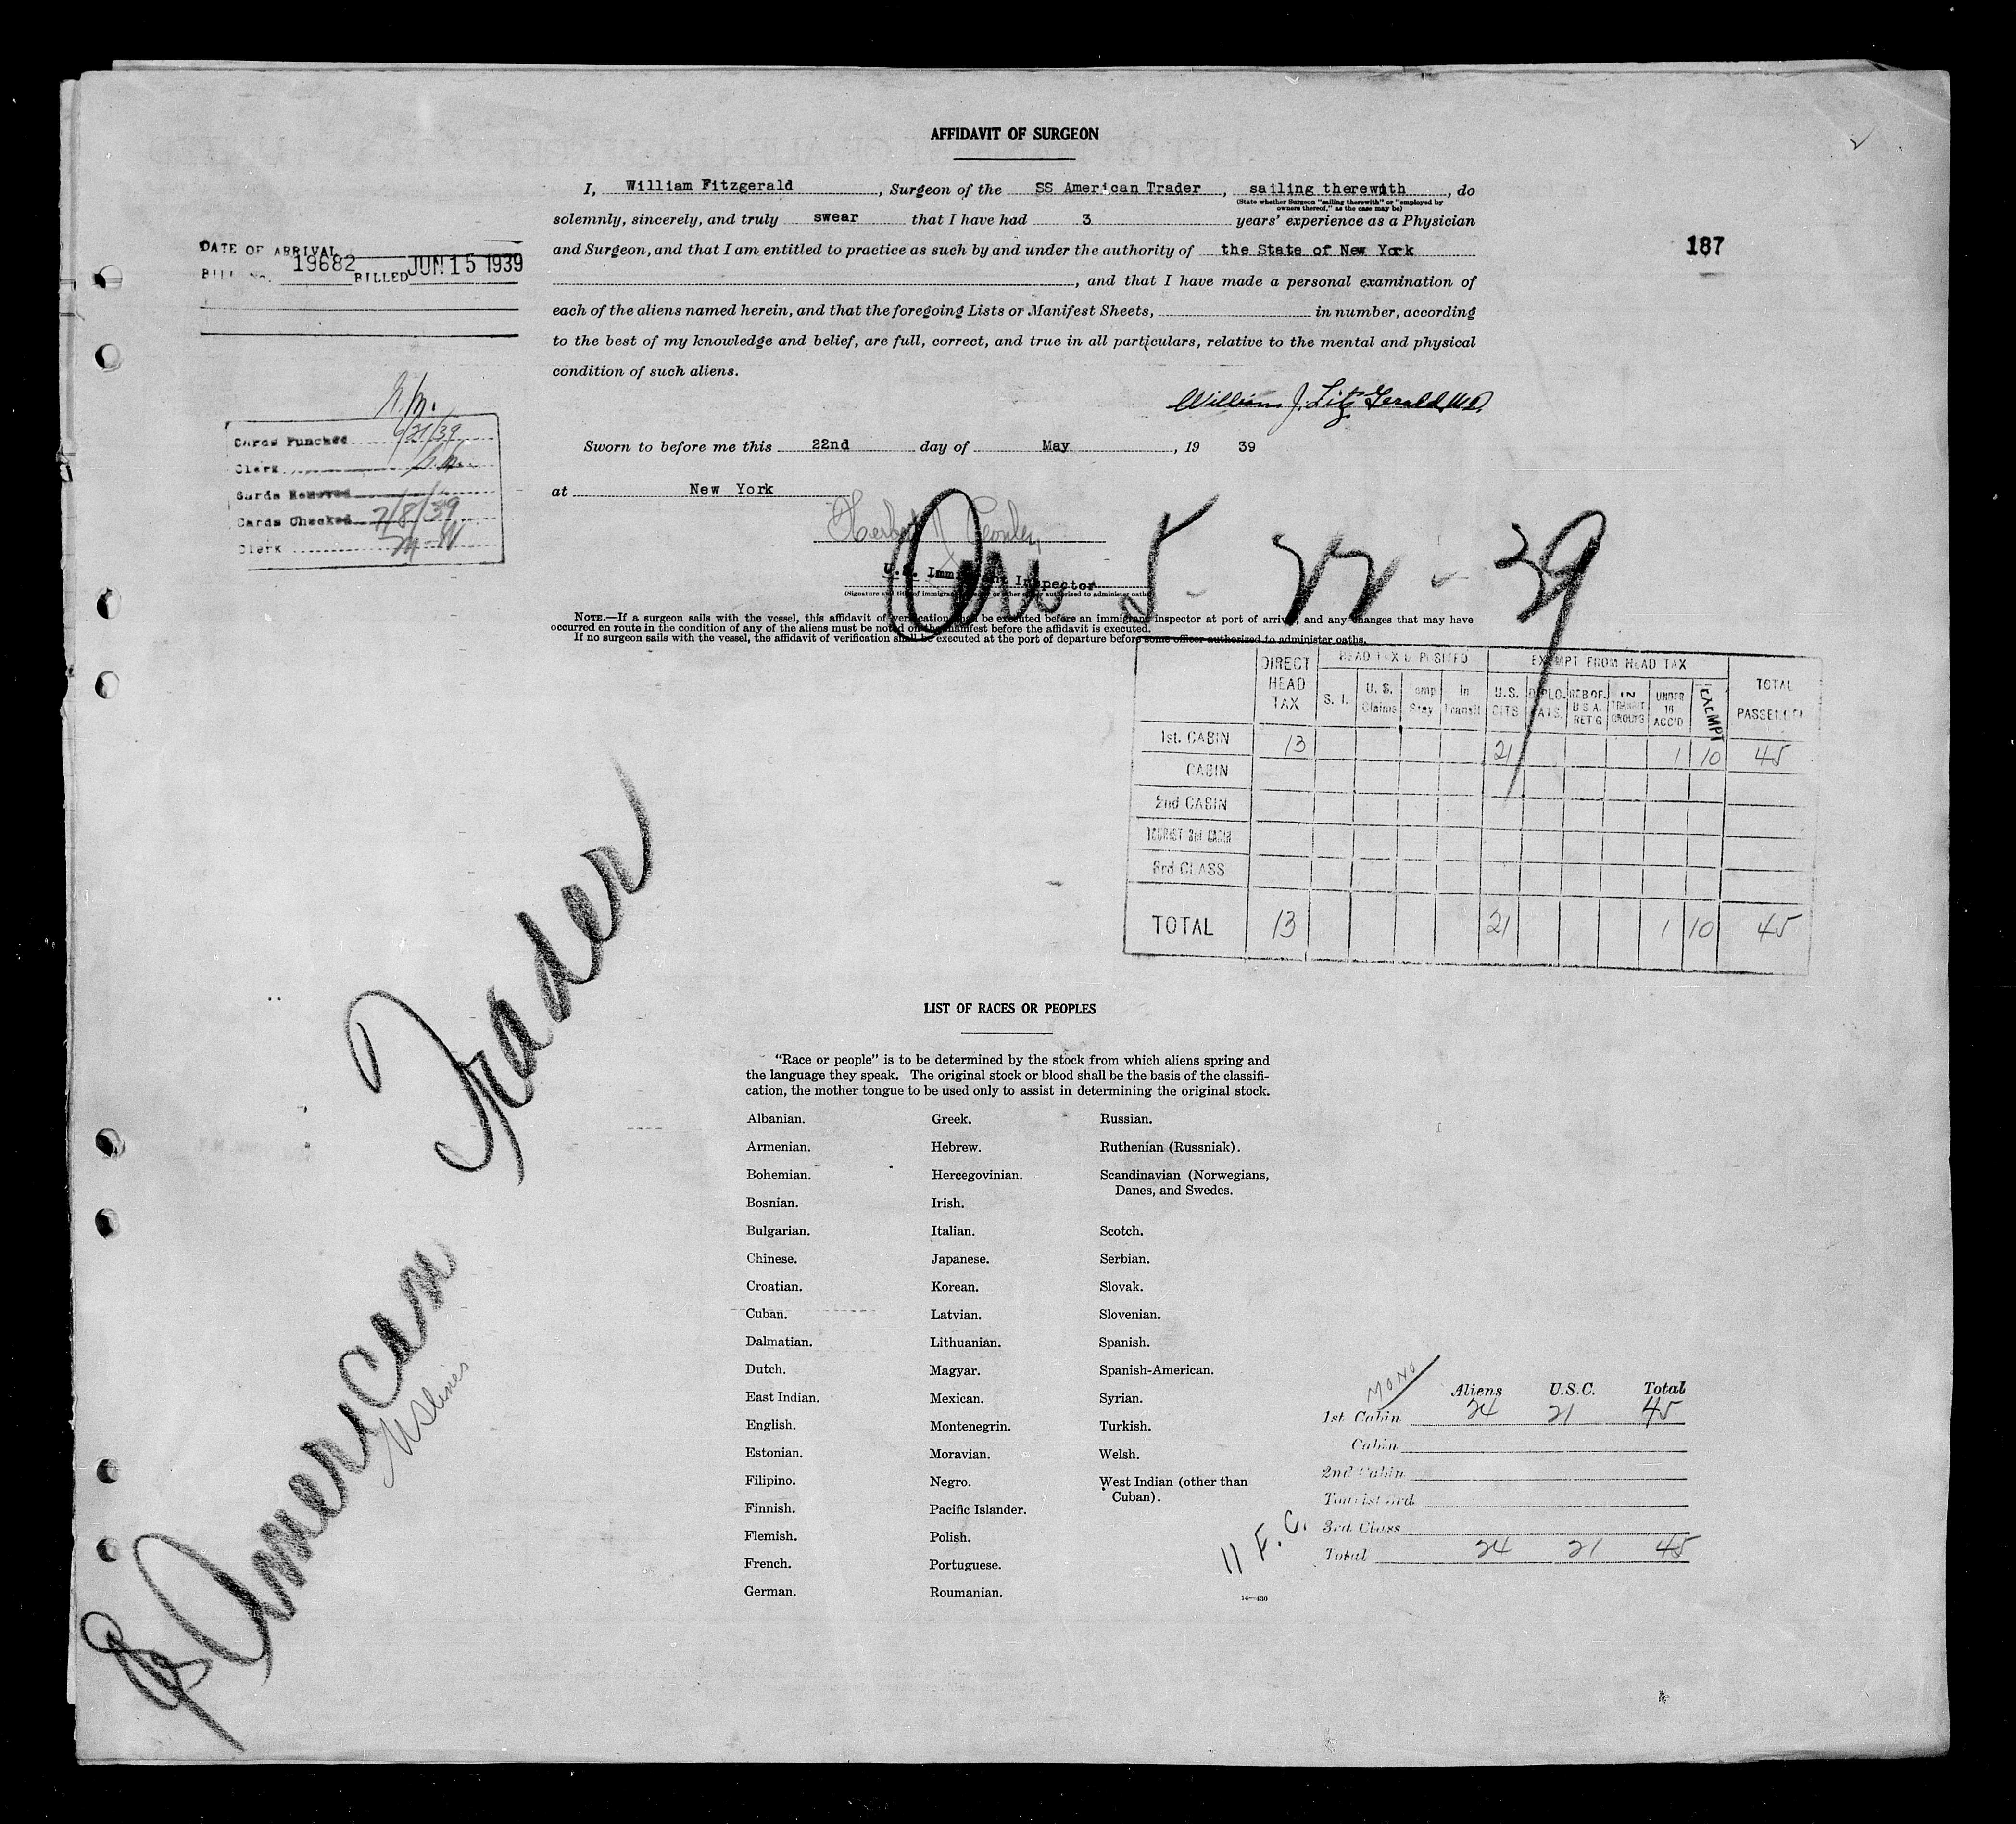 AFFIDAVIT OF SURGEON
I, William Fitzgerald, Surgeon of the SS American Trader, sailing therewith, do
(State whether Surgeon "sailing therewith" or "employed by
owners thereof," as the case may be)
solemnly, sincerely, and truly swear that I have had 3 years' experience as a Physician
and Surgeon, and that I am entitled to practice as such by and under the authority of the State of New York
, and that I have made a personal examination of
each of the aliens named herein, and that the foregoing Lists or Manifest Sheets, in number, according
to the best of my knowledge and belief, are full, correct, and true in all particulars, relative to the mental and physical
condition of such aliens.
William J. FitzGerald, M.D.
Sworn to before me this 22nd day of May, 19 39
at New York
U.S. Immigrant Inspector
(Signature and title of immigrant inspector or other officer authorized to administer oaths)
NOTE.—If a surgeon sails with the vessel, this affidavit of verification shall be executed before an immigrant inspector at port of arrival, and any changes that may have
occurred en route in the condition of any of the aliens must be noted on the manifest before the affidavit is executed.
If no surgeon sails with the vessel, the affidavit of verification shall be executed at the port of departure before some officer authorized to administer oaths.
187
DATE OF ARRIVAL
BILL No. 19682 BILLED JUN 15 1939
Cards Punched 6/21/39
Clerk
Cards Removed
Cards Checked 7/8/39
Clerk M-W
Arr 5-22-39
DIRECT HEAD TAX
HEAD TAX DEPOSITED
EXEMPT FROM HEAD TAX
TOTAL PASSENGERS
S. I. U. S. Claims Temp Stay In Transit U.S. CITS DIPLO. ATS. RES OF. U.S.A. RET'G IN TRANSIT GROUPS UNDER 16 ACC'D EXEMPT
1st. CABIN 13 21 1 10 45
CABIN
2nd CABIN
TOURIST 3rd CABIN
3rd CLASS
TOTAL 13 21 1 10 45
SS American Trader
US Lines
LIST OF RACES OR PEOPLES
"Race or people" is to be determined by the stock from which aliens spring and
the language they speak. The original stock or blood shall be the basis of the classifi-
cation, the mother tongue to be used only to assist in determining the original stock.
Albanian.
Armenian.
Bohemian.
Bosnian.
Bulgarian.
Chinese.
Croatian.
Cuban.
Dalmatian.
Dutch.
East Indian.
English.
Estonian.
Filipino.
Finnish.
Flemish.
French.
German.
Greek.
Hebrew.
Hercegovinian.
Irish.
Italian.
Japanese.
Korean.
Latvian.
Lithuanian.
Magyar.
Mexican.
Montenegrin.
Moravian.
Negro.
Pacific Islander.
Polish.
Portuguese.
Roumanian.
Russian.
Ruthenian (Russniak).
Scandinavian (Norwegians,
Danes, and Swedes.
Scotch.
Serbian.
Slovak.
Slovenian.
Spanish.
Spanish-American.
Syrian.
Turkish.
Welsh.
West Indian (other than
Cuban).
14—430
MONO
Aliens U.S.C. Total
1st Cabin 24 21 45
Cabin
2nd Cabin
Tourist 3rd.
3rd Class
Total 24 21 45
11 F.C.